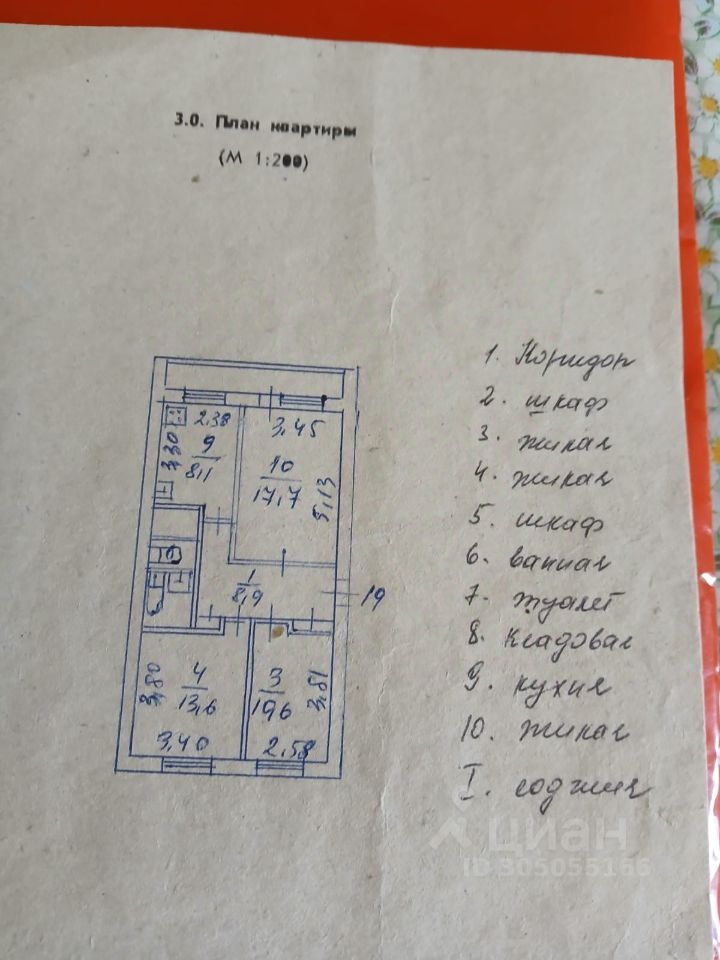 3.0. План квартиры
(М 1:200)
2.38
3,30
9
8,1
3.45
10
17,7
5,13
1
8,9
19
4
13,6
3,80
3,40
3
10,6
3,81
2.58
1. Коридор
2. шкаф
3. жилая
4. жилая
5. шкаф
6. ванная
7. туалет
8. Кладовая
9. кухня
10. жилая
I. лоджия
циан
ID 305055166